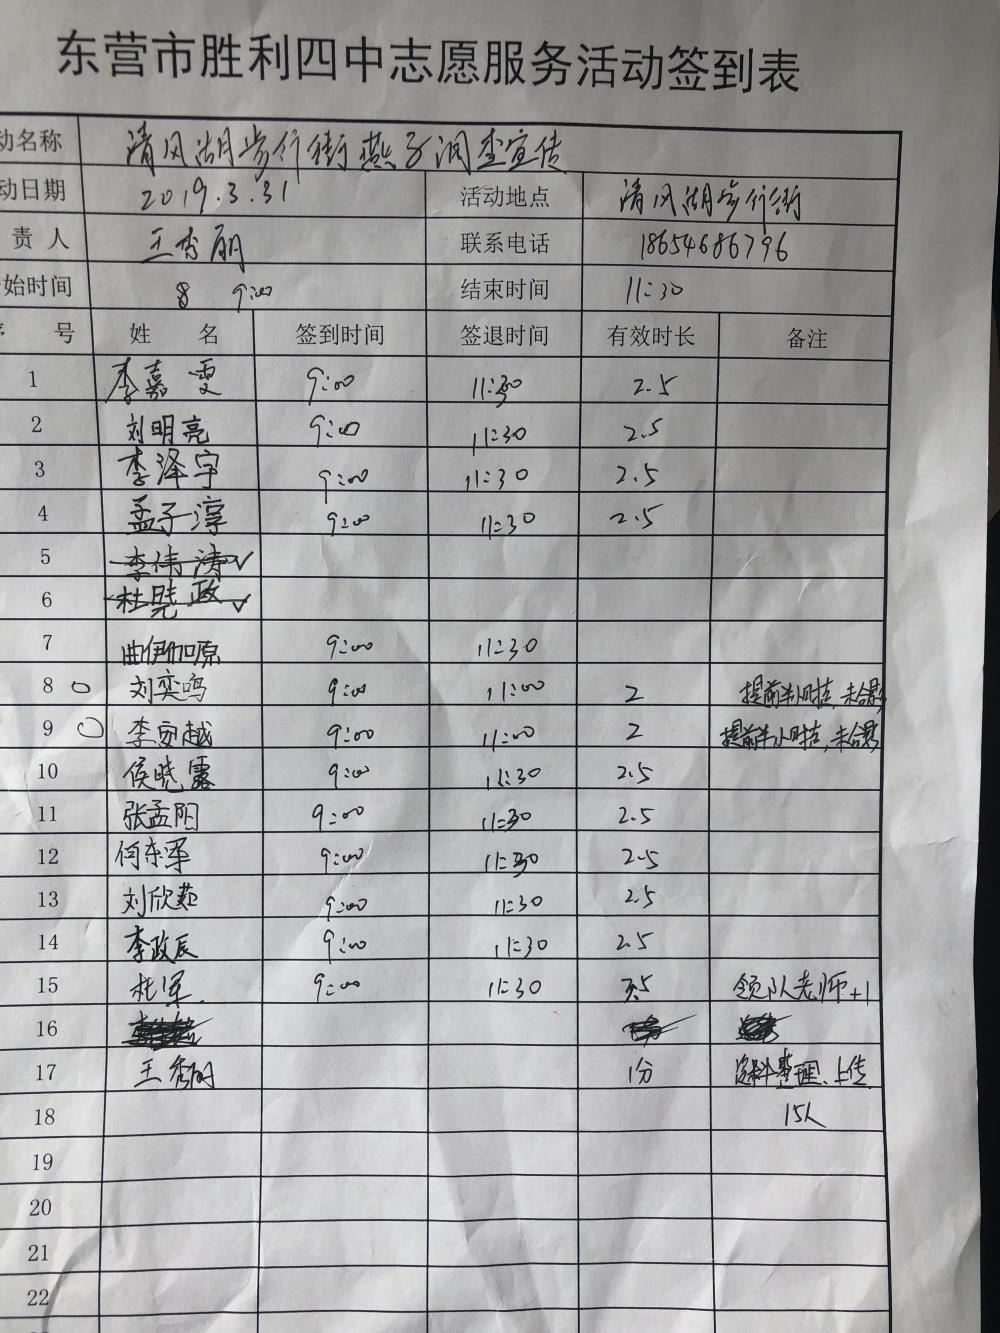 东营市胜利四中志愿服务活动签到表
动名称 清风湖步行街燕子调查宣传
动日期 2019.3.31 活动地点 清风湖步行街
责人 王秀丽 联系电话 18654686796
始时间 8 9:00 结束时间 11:30
号 姓名 签到时间 签退时间 有效时长 备注
1 李嘉雯 9:00 11:30 2.5
2 刘明亮 9:00 11:30 2.5
3 李泽宇 9:00 11:30 2.5
4 孟子淳 9:00 11:30 2.5
5 李伟涛
6 杜晓政
7 曲伊伽原 9:00 11:30
8 刘奕鸣 9:00 11:00 2 提前半小时走,未合影
9 李安越 9:00 11:00 2 提前半小时走,未合影
10 侯晓露 9:00 11:30 2.5
11 张孟阳 9:00 11:30 2.5
12 何东军 9:00 11:30 2.5
13 刘欣茹 9:00 11:30 2.5
14 李政辰 9:00 11:30 2.5
15 杜军 9:00 11:30 领队老师+1
16
17 王秀丽 1分 资料整理、上传
18 15人
19
20
21
22